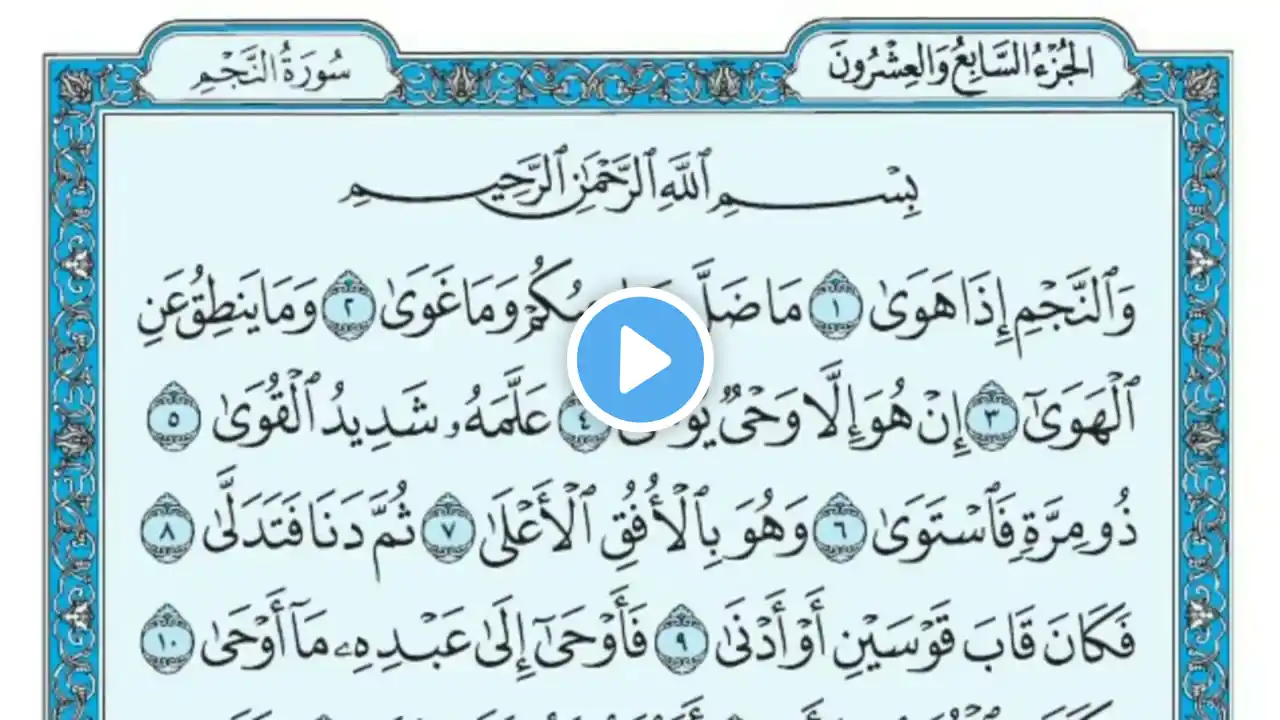 الجُزْءُ السَّابِعُ وَالعِشْرُونَ
سُورَةُ النَّجْمِ
بِسْمِ ٱللَّهِ ٱلرَّحْمَٰنِ ٱلرَّحِيمِ
وَٱلنَّجْمِ إِذَا هَوَىٰ ١ مَا ضَلَّ وَمَا غَوَىٰ ٢ وَمَا يَنطِقُ عَنِ
ٱلْهَوَىٰٓ ٣ إِنْ هُوَ إِلَّا وَحْىٌ ٤ عَلَّمَهُۥ شَدِيدُ ٱلْقُوَىٰ ٥
ذُو مِرَّةٍ فَٱسْتَوَىٰ ٦ وَهُوَ بِٱلْأُفُقِ ٱلْأَعْلَىٰ ٧ ثُمَّ دَنَا فَتَدَلَّىٰ ٨
فَكَانَ قَابَ قَوْسَيْنِ أَوْ أَدْنَىٰ ٩ فَأَوْحَىٰٓ إِلَىٰ عَبْدِهِۦ مَآ أَوْحَىٰ ١٠